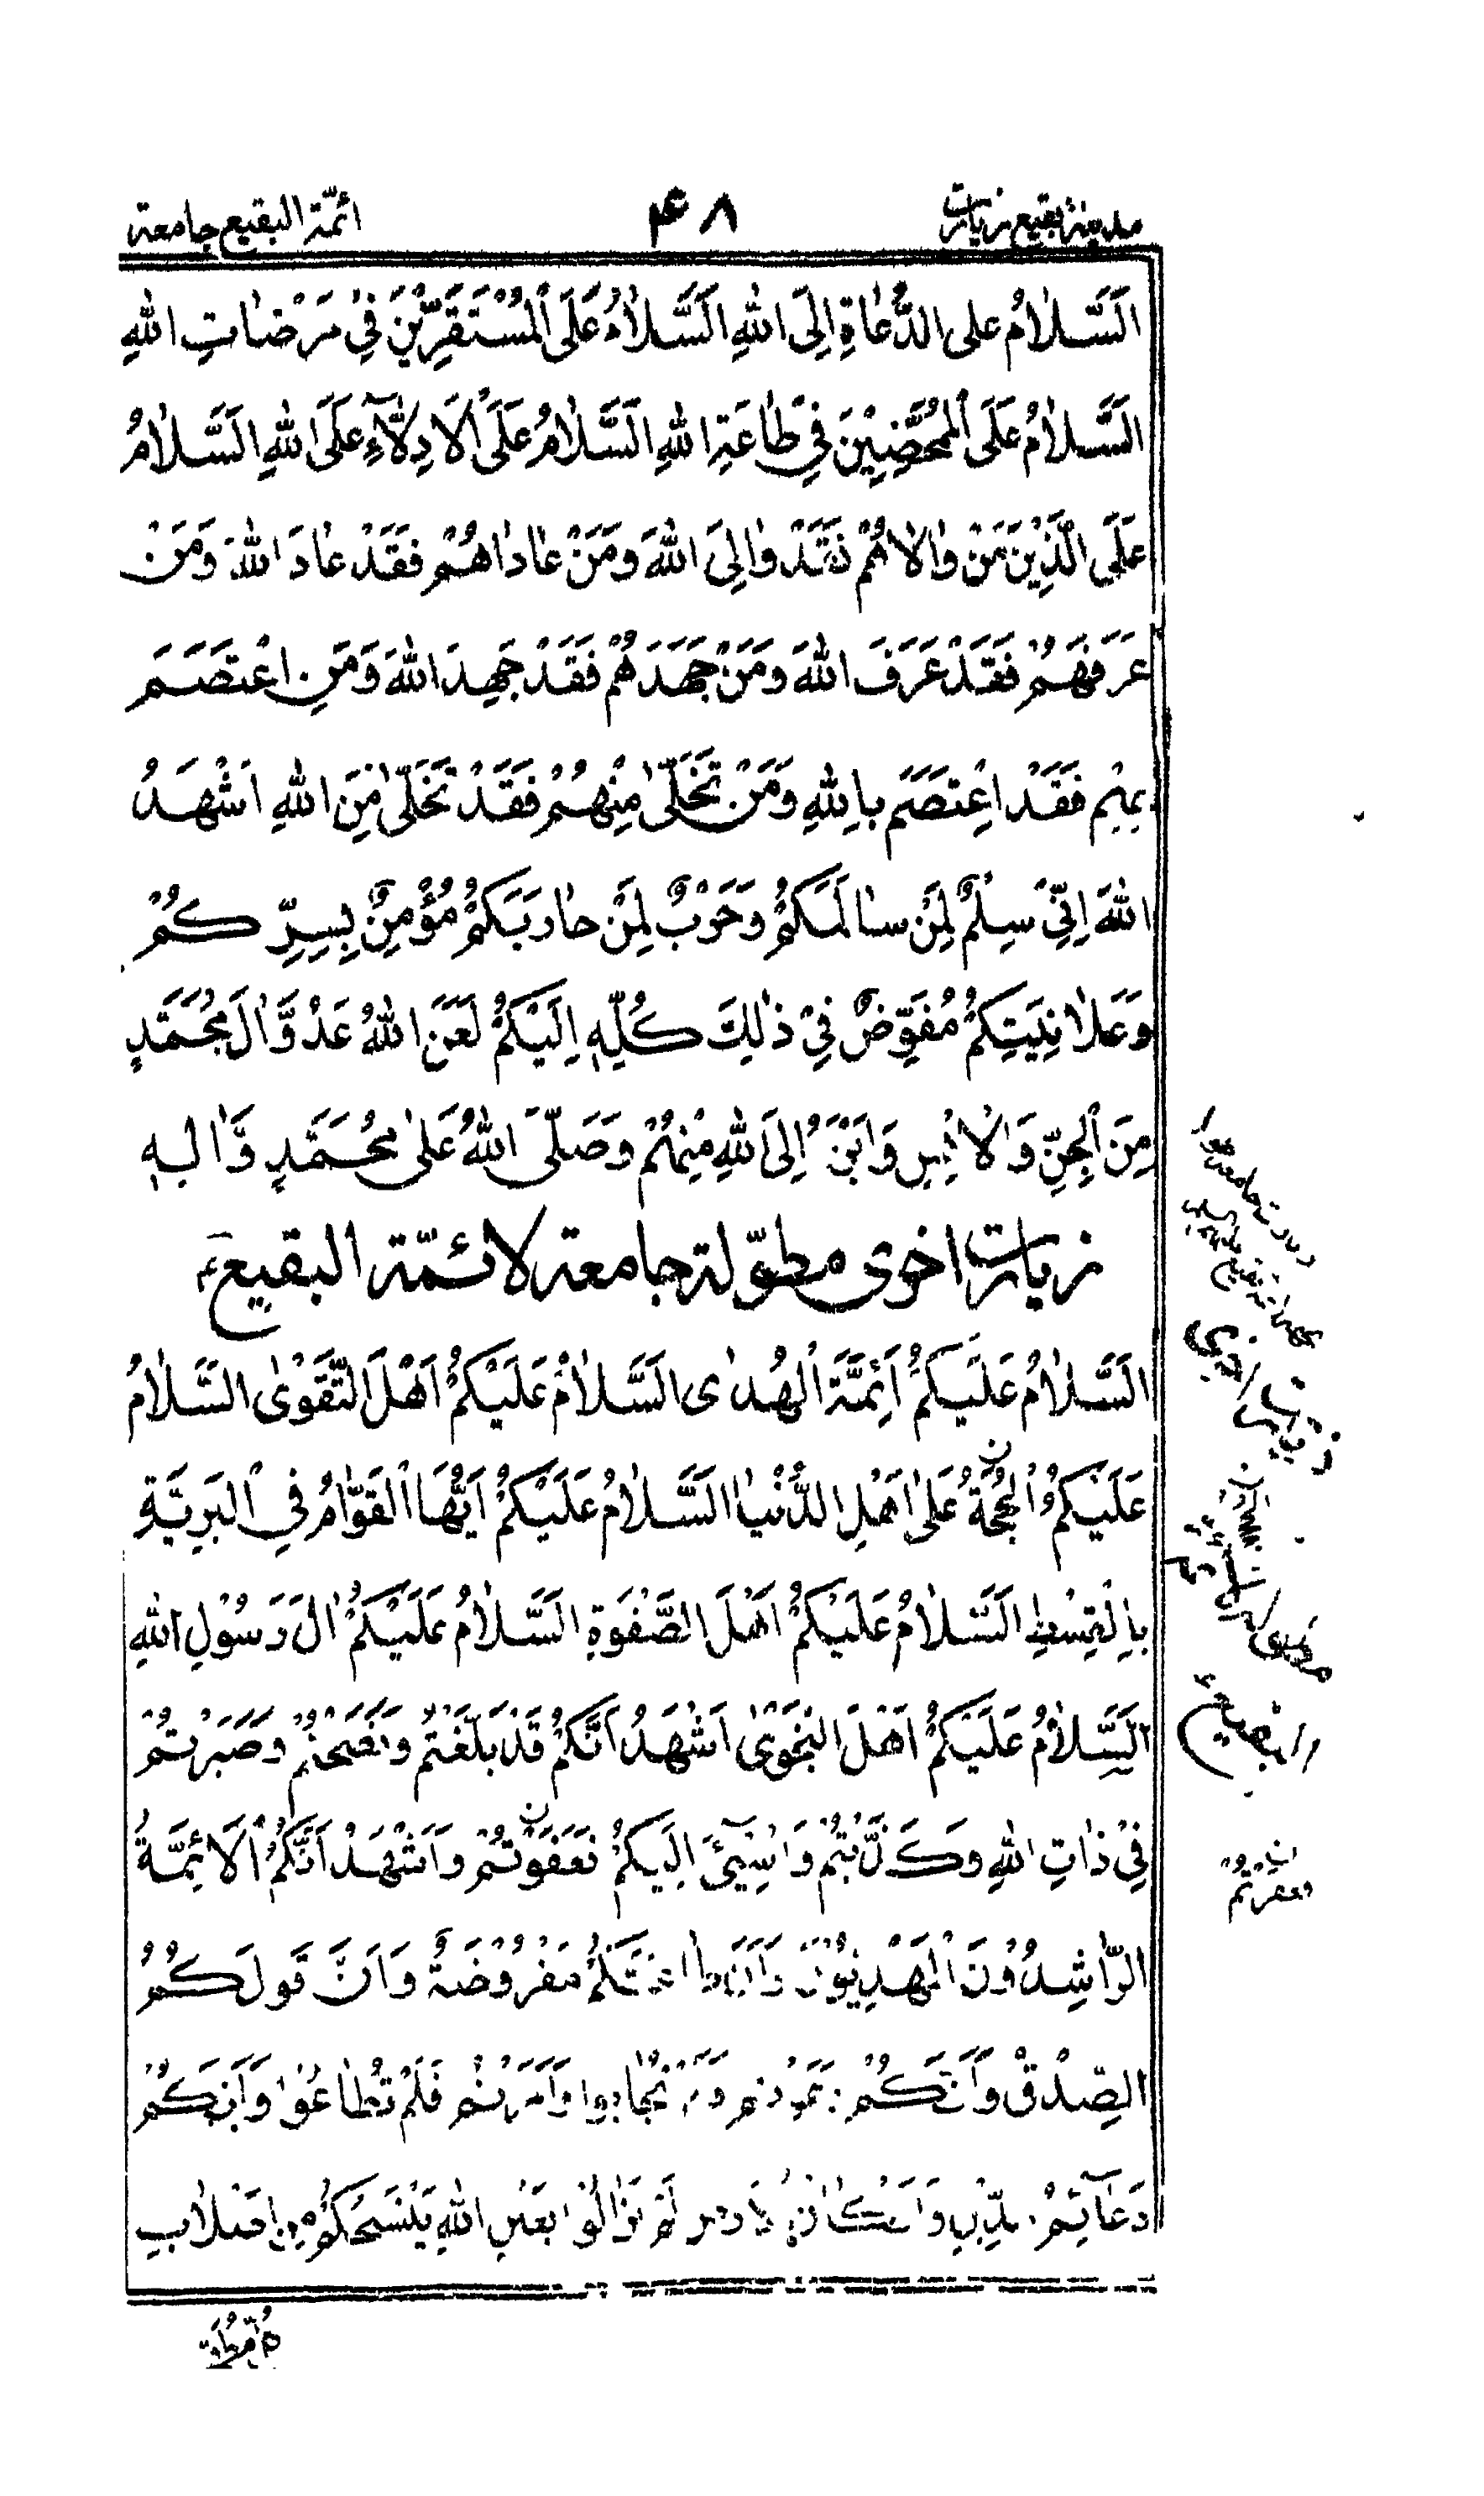 مدینہ بقیع زیارت
۴۸
ائمّة البقیع جامعة
اَلسَّلٰامُ على الدُّعٰاةِ اِلَى اللهِ اَلسَّلٰامُ عَلَى الْمُسْتَقِرِّيْنَ فِيْ مَرْضٰاتِ اللهِ
السَّلٰامُ عَلَى الْمُمَحَّضِيْنَ فِيْ طٰاعَةِ اللهِ اَلسَّلٰامُ عَلَى الْاَدِلّٰاۤءِ عَلَى اللهِ اَلسَّلٰامُ
عَلَى الَّذِيْنَ مَنْ وٰالٰاهُمْ فَقَدْ وٰالَى اللهَ وَمَنْ عٰادٰاهُمْ فَقَدْ عٰادَ اللهَ وَمَنْ
عَرَفَهُمْ فَقَدْ عَرَفَ اللهَ وَمَنْ جَهَدَهُمْ فَقَدْ جَهِدَ اللهَ وَمَنِ اعْتَصَمَ
بِهِمْ فَقَدْ اعْتَصَمَ بِاللهِ وَمَنْ تَخَلّٰى مِنْهُمْ فَقَدْ تَخَلّٰى مِنَ اللهِ اَشْهَدُ
اللهَ اِنِّيْ سِلْمٌ لِمَنْ سٰالَمَكُمْ وَحَرْبٌ لِمَنْ حٰارَبَكُمْ مُؤْمِنٌ بِسِرِّكُمْ
وَعَلٰانِيَتِكُمْ مُفَوِّضٌ فِيْ ذٰلِكَ كُلِّهٖ اِلَيْكُمْ لَعَنَ اللهُ عَدُوَّ اٰلَ مُحَمَّدٍ
مِنَ الْجِنِّ وَالْاِنْسِ وَاَبْرَءُ اِلَى اللهِ مِنْهُمْ وَصَلَّى اللهُ عَلٰى مُحَمَّدٍ وَّاٰلِهٖ
زیارت اخری مطوّلة جامعة لائمّة البقیع ؑ
اَلسَّلٰامُ عَلَيْكُمْ اَئِمَّةَ الْهُدٰى اَلسَّلٰامُ عَلَيْكُمْ اَهْلَ التَّقْوٰى السَّلٰامُ
عَلَيْكُمُ الْحُجَّةُ عَلٰى اَهْلِ الدُّنْيٰا اَلسَّلٰامُ عَلَيْكُمْ اَيُّهَا الْقَوّٰامُ فِي الْبَرِيَّةِ
بِالْقِسْطِ اَلسَّلٰامُ عَلَيْكُمْ اَهْلَ الصَّفْوَةِ اَلسَّلٰامُ عَلَيْكُمْ اٰلَ رَسُوْلِ اللهِ
اَلسَّلٰامُ عَلَيْكُمْ اَهْلَ النَّجْوٰى اَشْهَدُ اَنَّكُمْ قَدْ بَلَّغْتُمْ وَنَصَحْتُمْ وَصَبَرْتُمْ
فِيْ ذٰاتِ اللهِ وَكُذِّبْتُمْ وَاُسِيْئَ اِلَيْكُمْ فَعَفَوْتُمْ وَاَشْهَدُ اَنَّكُمُ الْاَئِمَّةُ
الرّٰاشِدُوْنَ الْمَهْدِيُّوْنَ وَاَنَّ طٰاعَتَكُمْ مَفْرُوْضَةٌ وَاَنَّ قَولَكُمُ
الصِّدْقُ وَاَنَّكُمْ وَاَمَرْتُمْ فَلَمْ تُطٰاعُوْا وَاَنَّكُمْ
دَعٰاۤئِمُ الدِّيْنِ وَاَرْكٰانُ لَمْ تَزٰالُوْا بِعَيْنِ اللهِ يَنْسَخُكُمْ مِنْ اَصْلٰابِ
زیارت اخری
مطوله
البقیع
فغفرتم